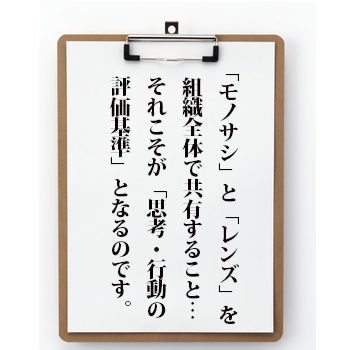 「モノサシ」と「レンズ」を
組織全体で共有すること…
それこそが「思考・行動の
評価基準」となるのです。